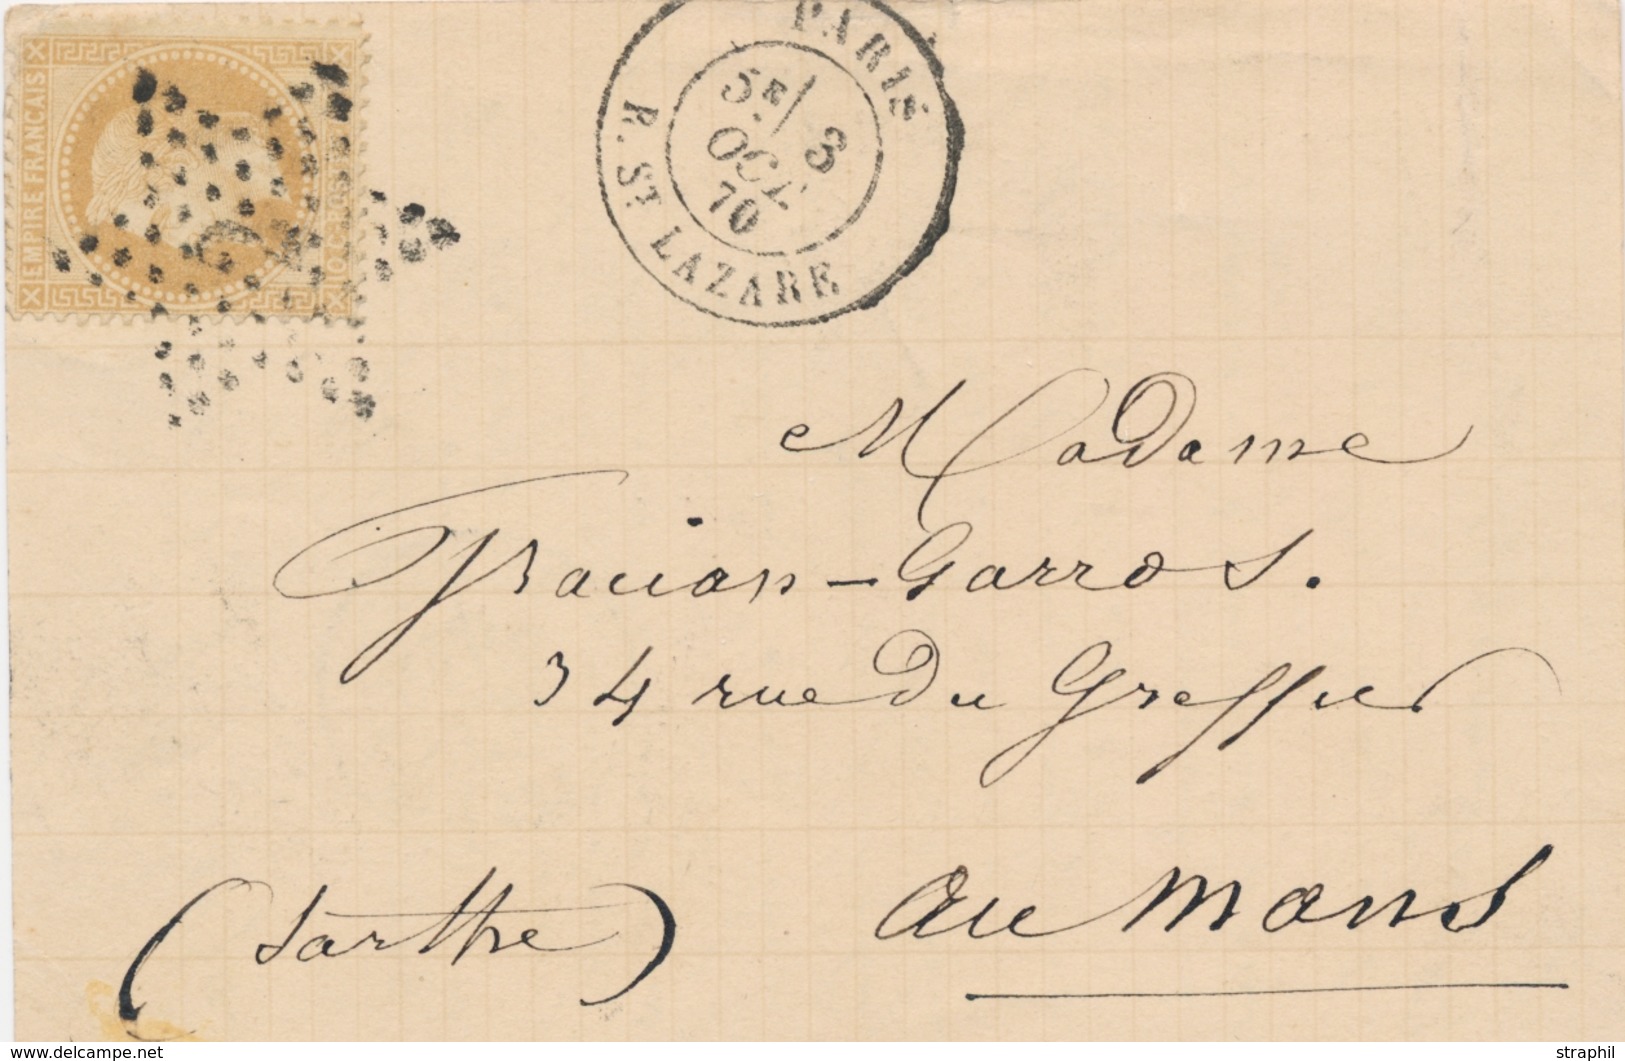 EMPIRE FRANCAIS
PARIS
5E/ 3
OCT.
70
R. ST LAZARE
Madame
Gracian-Garros.
34 rue du Greffier
(Sarthe) au Mans
delcampe.net
straphil